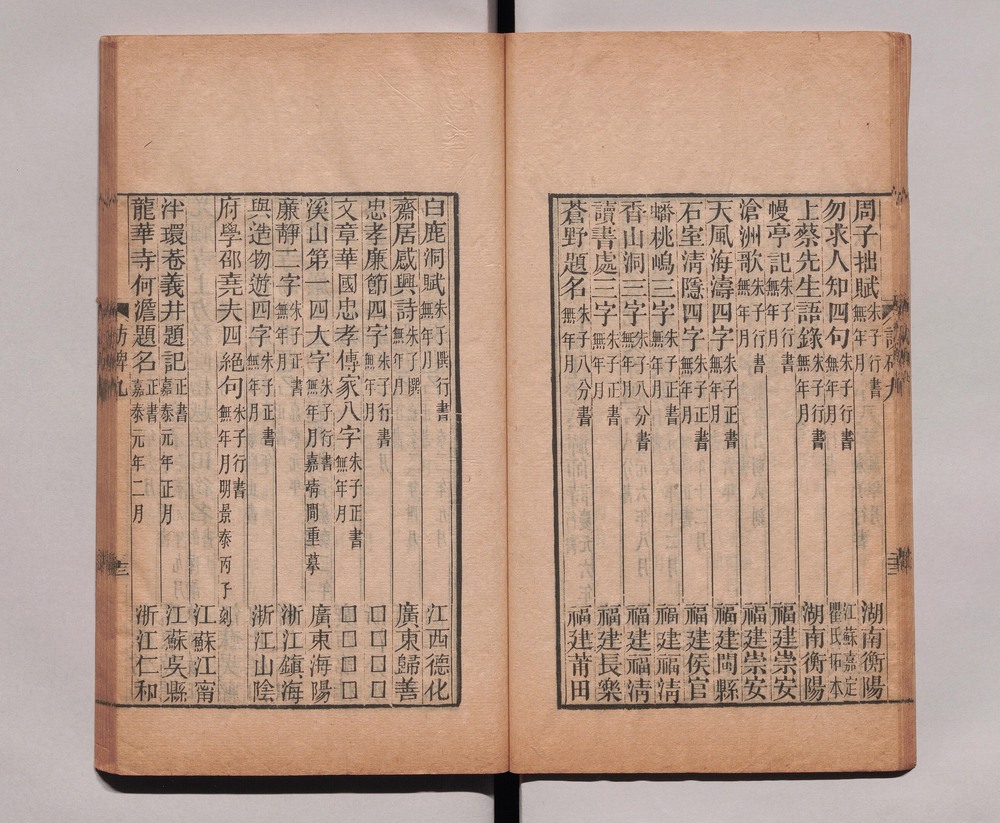 周子拙賦 朱子行書 無年月 湖南衡陽
勿求人知四句 朱子行書 無年月 江蘇嘉定瞿氏拓本
上蔡先生語錄 朱子行書 無年月 湖南衡陽
幔亭記 朱子行書 無年月 福建崇安
滄洲歌 朱子行書 無年月 福建崇安
天風海濤四字 朱子正書 無年月 福建閩縣
石室清隱四字 朱子正書 無年月 福建侯官
蟠桃嶋三字 朱子正書 無年月 福建福清
香山洞三字 朱子八分書 無年月 福建福清
讀書處三字 朱子正書 無年月 福建長樂
蒼野題名 朱子八分書 無年月 福建莆田
白鹿洞賦 朱子撰行書 無年月 江西德化
齋居感興詩 朱子撰 無年月 廣東歸善
忠孝廉節四字 朱子行書 無年月 □□□□
文章華國忠孝傳家八字 朱子正書 無年月 □□□□
溪山第一四大字 朱子行書 無年月嘉靖間重摹 廣東海陽
廉靜二字 朱子正書 無年月 浙江鎮海
與造物遊四字 朱子正書 無年月 浙江山陰
府學邵堯夫四絕句 朱子行書 無年月明景泰丙子刻
江蘇江甯
泮環巷義井題記 正書 嘉泰元年正月 江蘇吳縣
龍華寺何澹題名 正書 嘉泰元年二月 浙江仁和
訪碑九
三